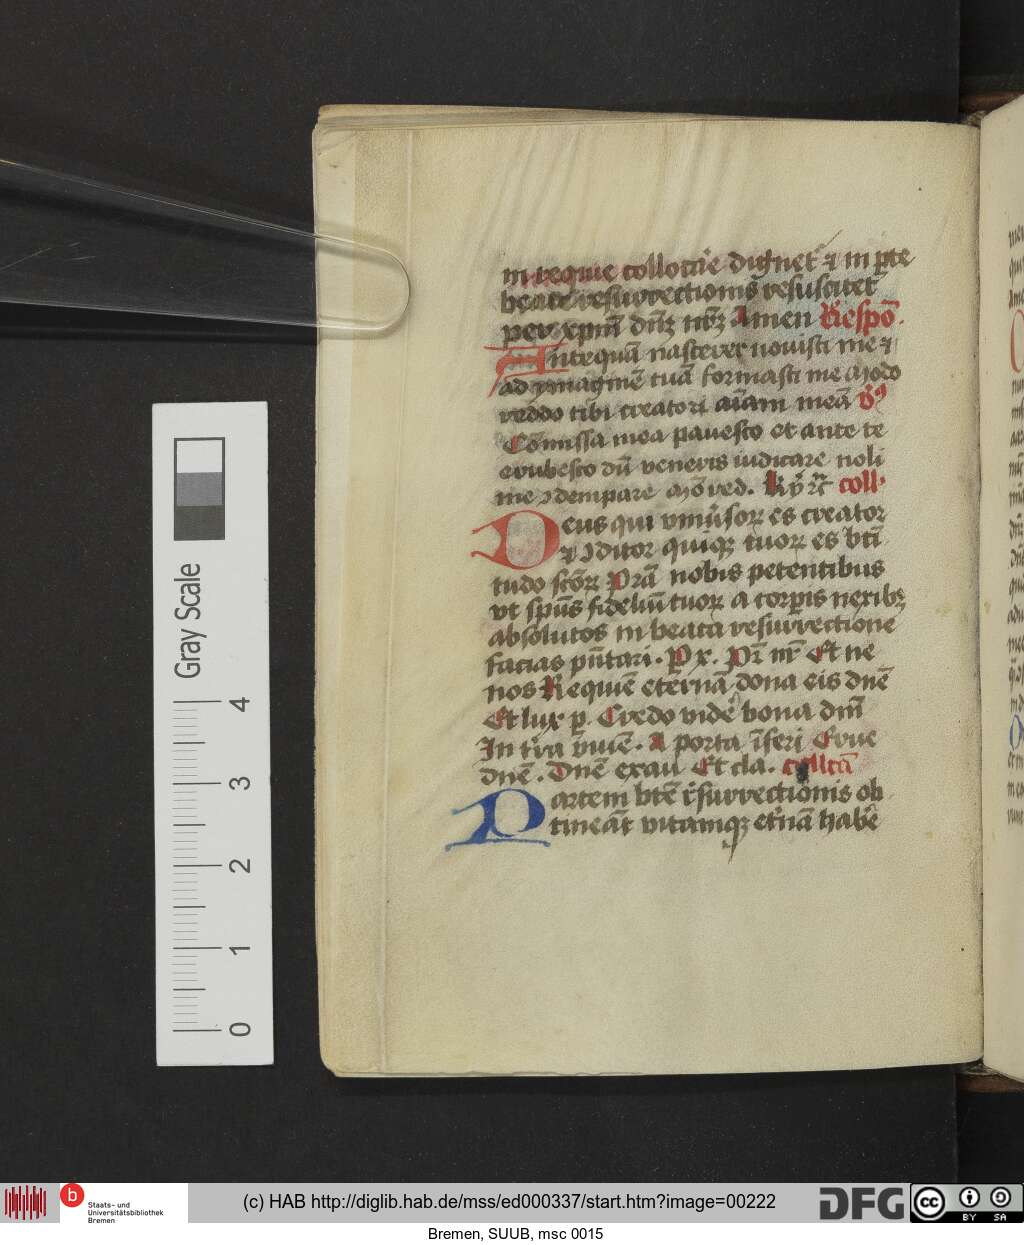 in requie collocare dignet᷑ ⁊ in ꝑte
beate resurrectionis resuscitet
per xpm̄ dn̄ꝫ nr̄ꝫ Amen Respō.
Antequā nascerer nouisti me ⁊
ad ymaginē tuā formasti me Modo
reddo tibi creatori aīam meā v̄s
Cōmissa mea pauesco et ante te
erubesco dū veneris iudicare noli
me ɔdempnare Mō red. coll᷑
Deus qui vniūsoꝝ es creator
⁊ ɔditor quiqꝫ tuoꝝ es bti
tudo scōꝝ Prā nobis petentibus
vt spūs fideliū tuoꝝ a corꝑis nexibꝫ
absolutos in beata resurrectione
facias pn̄tari. P x. Pr̄ nr̄ Et ne
nos Requiē eternā dona eis dn̄e
Et lux p. Credo videre bona dm̄
In tr̄a viuē. A porta īferi Erue
dn̄e. Dn̄e exau Et cla. collcā
Partem btē r̄surrectionis ob
tineāt vitamqꝫ et̄nā habē
Gray Scale
4
3
2
1
0
b
Staats- und
Universitätsbibliothek
Bremen
(c) HAB http://diglib.hab.de/mss/ed000337/start.htm?image=00222
DFG
cc
BY SA
Bremen, SUUB, msc 0015